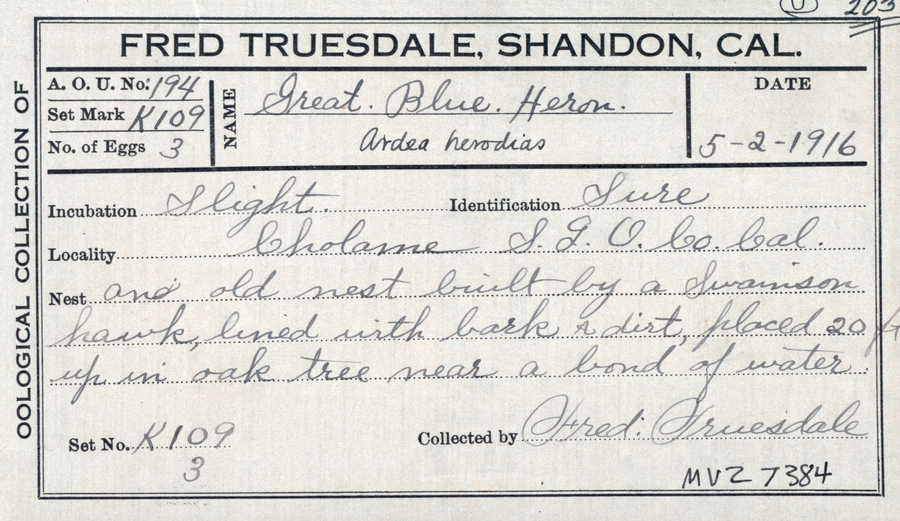 U 203
FRED TRUESDALE, SHANDON, CAL.
OOLOGICAL COLLECTION OF
A. O. U. No. 194
Set Mark K109
No. of Eggs 3
NAME Great. Blue. Heron.
Ardea herodias
DATE
5-2-1916
Incubation Slight. Identification Sure
Locality Cholame S. L. O. Co. Cal.
Nest and old nest built by a Swainson
hawk, lined with bark & dirt, placed 20 ft
up in oak tree near a bond of water.
Set No. K109
3
Collected by Fred. Truesdale
MVZ 7384